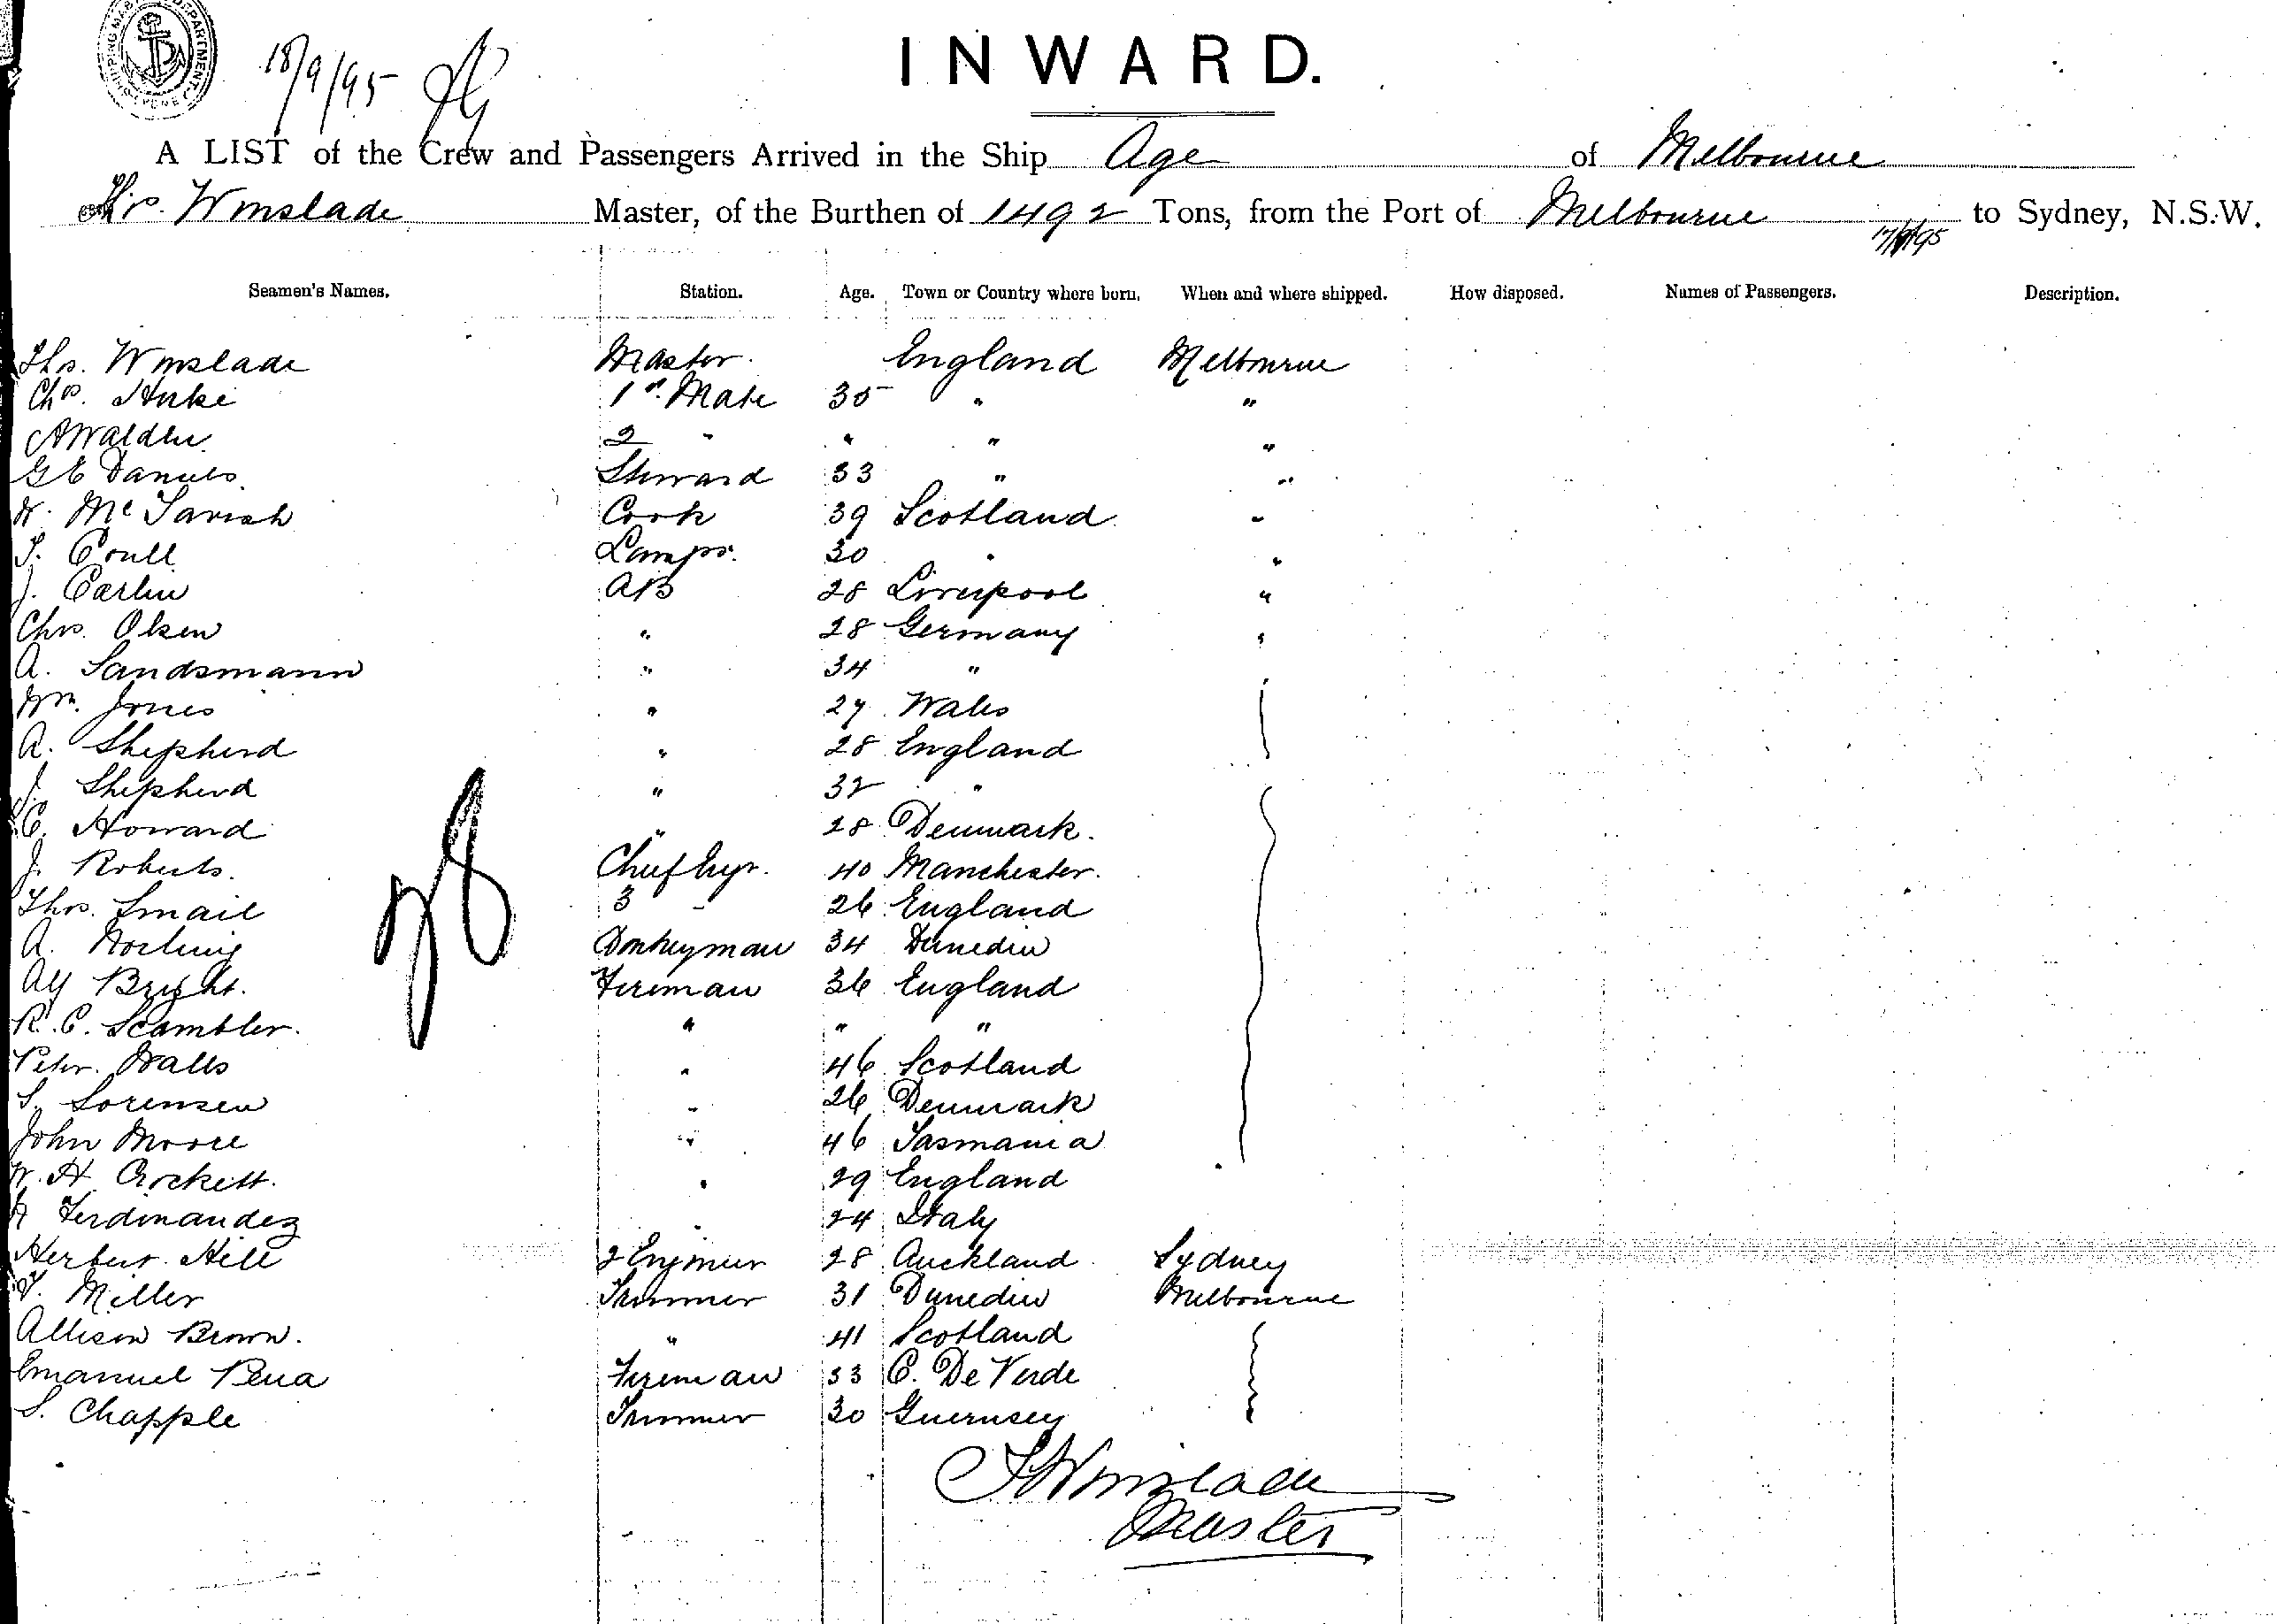 18/9/95
INWARD.
A LIST of the Crew and Passengers Arrived in the Ship Age of Melbourne
Thos. Winslade Master, of the Burthen of 1492 Tons, from the Port of Melbourne to Sydney, N.S.W.
17/9/95
Seamen's Names. Station. Age. Town or Country where born. When and where shipped. How disposed. Names of Passengers. Description.
Thos. Winslade Master. England Melbourne
Chas. 1st Mate 35 " "
A Walden 2 " " " "
G E Daniels Steward 33 " "
Mc Tavish Cook 39 Scotland "
T. Coull Lamps. 30 " "
J. Carlin AB 28 Liverpool "
Chrs. Olsen " 28 Germany "
A. Sandsmann " 34 "
Wm. Jones " 27 Wales
A. Shepherd " 28 England
J. Shepherd " 32 "
C. Howard " 28 Denmark.
J. Roberts. Chief Engr. 40 Manchester.
Thos. Smail 3 " 26 England
A. Donkeyman 34 Dunedin
Alf Bright. Fireman 36 England
R. C. Scambler. " " "
Peter Walls " 46 Scotland
S. Sorensen " 26 Denmark
John Moore " 46 Tasmania
W. H. Crockett. " 29 England
Ferdinandez " 24 Italy
Herbert Hill 2 Engineer 28 Auckland Sydney
T. Miller Trimmer 31 Dunedin Melbourne
Allison Brown. " 41 Scotland
Emanuel Pena Fireman 33 C. De Verde
S. Chapple Trimmer 30 Guernsey
T Winslade
Master